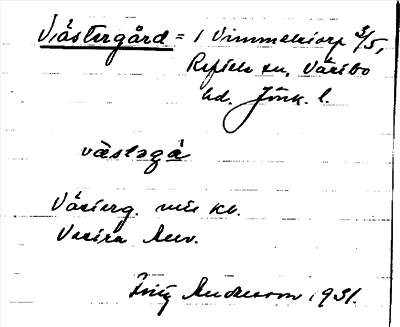 Västergård = 1 Vimmelstorp 3/5,
Reftele sn, Västbo
hd. Jönk. l.
västəgɑ̄
Västerg. utt. kb.
Västra Rev.
Fritz Andersson 1931.